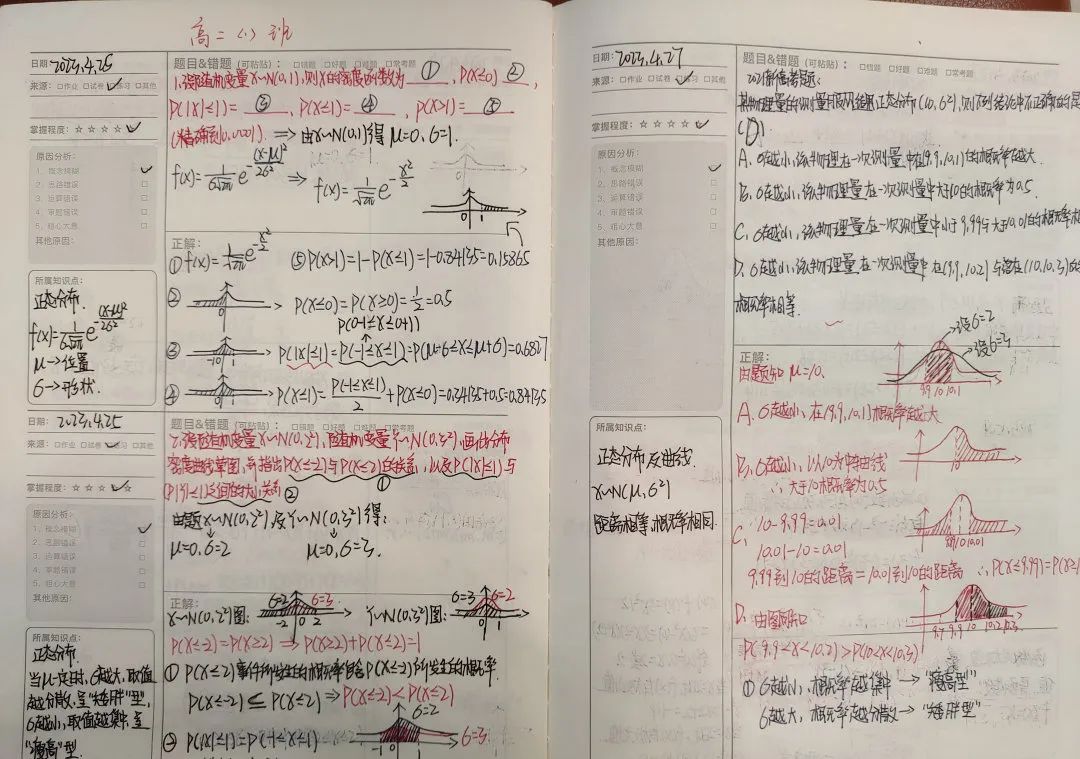 高二(1)班
日期: 2023.4.25
来源: □作业 □试卷 □练习 □其他
掌握程度: ☆ ☆ ☆ ☆
原因分析:
1、概念模糊
2、思路错误
3、运算错误
4、审题错误
5、粗心大意
其他原因:
所属知识点:
正态分布.
f(x)=1/(σ√2π) e^-(x-μ)²/2σ²
μ→位置
σ→形状.
题目&错题 (可粘贴): □错题 □好题 □难题 □常考题
1.设随机变量X~N(0,1),则X的密度函数为 ① , P(X≤0) ② ,
P(|X|≤1)= ③ , P(X≤1)= ④ , P(X>1)= ⑤
(精确到0.0001). ⇒ 由X~N(0,1)得 μ=0, σ=1.
f(x)=1/(σ√2π) e^-(x-μ)²/2σ² ⇒ f(x)=1/√2π e^-x²/2
0 1
正解:
①f(x)=1/√2π e^-x²/2 ⑤P(X>1)=1-P(X≤1)=1-0.84135=0.15865
② 0 P(X≤0)=P(X≥0)=1/2=0.5
P(0-1≤X≤0+1)
③ -1 0 1 P(|X|≤1)=P(-1≤X≤1)=P(μ-σ≤X≤μ+σ)=0.6827
④ 0 1 P(X≤1)=P(-1≤X≤1)/2+P(X≤0)=0.34135+0.5=0.84135
日期: 2023.4.25
来源: □作业 □试卷 □练习 □其他
掌握程度: ☆ ☆ ☆ ☆
原因分析:
1、概念模糊
2、思路错误
3、运算错误
4、审题错误
5、粗心大意
其他原因:
所属知识点:
正态分布.
当μ一定时,σ越大,取值
越分散,呈"矮胖"型,
σ越小,取值越集中,呈
"瘦高"型
题目&错题 (可粘贴): □错题 □好题 □难题 □常考题
2.设随机变量X~N(0,2²),随机变量Y~N(0,3²),画出分布
密度曲线草图,并指出P(X≤-2)与P(X≤2)的关系,以及P(|X|≤1)与 ①
P(|Y|≤1)之间的大小关系 ②
由题X~N(0,2²)及Y~N(0,3²)得:
μ=0,σ=2 μ=0,σ=3.
正解:
X~N(0,2²)图: σ=2 σ=3 -2 0 2 Y~N(0,3²)图: σ=3 σ=2 0 1
P(X≤-2)=P(X≥2) ⇒ P(X≥2)+P(X≤2)=1
①P(X≤2)事件所发生的概率包含P(X≤-2)所发生的概率.
P(X≤-2)⊆P(X≤2) ⇒P(X≤-2)<P(X≤2)
P(|X|≤1)=P(-1≤X≤1) -1 0 1 σ=2 σ=3
日期: 2023.4.27
来源: □作业 □试卷 □练习 □其他
掌握程度: ☆ ☆ ☆ ☆
原因分析:
1、概念模糊
2、思路错误
3、运算错误
4、审题错误
5、粗心大意
其他原因:
所属知识点:
正态分布及曲线.
X~N(μ,σ²)
距离相等,概率相同.
题目&错题 (可粘贴): □错题 □好题 □难题 □常考题
2021新高考题:
某物理量的测量结果服从正态分布(10,σ²),则下列结论中不正确的是
(D)
A. σ越小,该物理量在一次测量中在(9.9,10.1)的概率越大.
B. σ越小,该物理量在一次测量中大于10的概率为0.5.
C. σ越小,该物理量在一次测量中小于9.99与大于10.01的概率相
D. σ越小,该物理量在一次测量中在(9.9,10.2)与落在(10,10.3)的
概率相等.
正解:
设σ=2
设σ=3
9.9 10 10.1
由题知 μ=10.
A. σ越小,在(9.9,10.1)概率越大
B. σ越小,以10为中轴曲线
∴大于10概率为0.5
C. ∵10-9.99=0.01
10.01-10=0.01
9.99 10 10.01
9.99到10的距离=10.01到10的距离 ∴P(X≤9.99)=P(X≥1
D. 由图知
9.7 9.9 10 10.2 10.3
P(9.9<X<10.2)>P(10<X<10.3)
① σ越小,概率越集中 → "瘦高型"
σ越大,概率越分散→ "矮胖型"